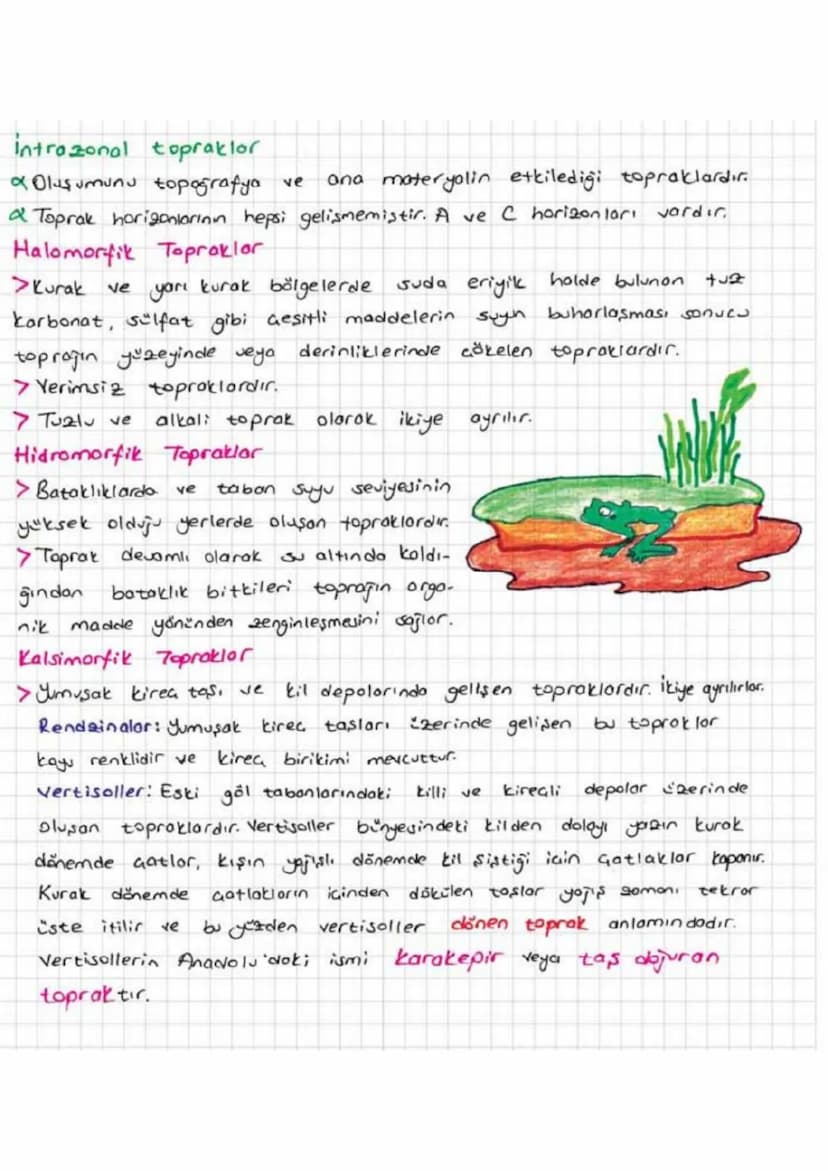 İntrazonal topraklar
α Oluşumunu topoğrafya ve ana materyalin etkilediği topraklardır.
α Toprak horizonlarının hepsi gelişmemiştir. A ve C horizonları vardır.
Halomorfik Topraklar
> Kurak ve yarı kurak bölgelerde suda eriyik halde bulunan tuz
karbonat, sülfat gibi çeşitli maddelerin suyun buharlaşması sonucu
toprağın yüzeyinde veya derinliklerinde çökelen topraklardır.
> Verimsiz topraklardır.
> Tuzlu ve alkali toprak olarak ikiye ayrılır.
Hidromorfik Topraklar
> Bataklıklarda ve taban suyu seviyesinin
yüksek olduğu yerlerde oluşan topraklardır.
> Toprak devamlı olarak su altında kaldı-
ğından bataklık bitkileri toprağın orga-
nik madde yönünden zenginleşmesini sağlar.
Kalsimorfik Topraklar
> Yumuşak kireç taşı ve kil depolarında gelişen topraklardır. İkiye ayrılırlar.
Rendzinalar: Yumuşak kireç taşları üzerinde gelişen bu topraklar
koyu renklidir ve kireç birikimi mevcuttur.
Vertisoller: Eski göl tabanlarındaki killi ve kireçli depolar üzerinde
oluşan topraklardır. Vertisoller bünyesindeki kilden dolayı yazın kurak
dönemde çatlar, kışın yağışlı dönemde kil şiştiği için çatlaklar kapanır.
Kurak dönemde çatlakların içinden dökülen taşlar yağış zamanı tekrar
üste itilir ve bu yüzden vertisoller dönen toprak anlamındadır.
Vertisollerin Anadolu'daki ismi karakepir veya taş doğuran
topraktır.